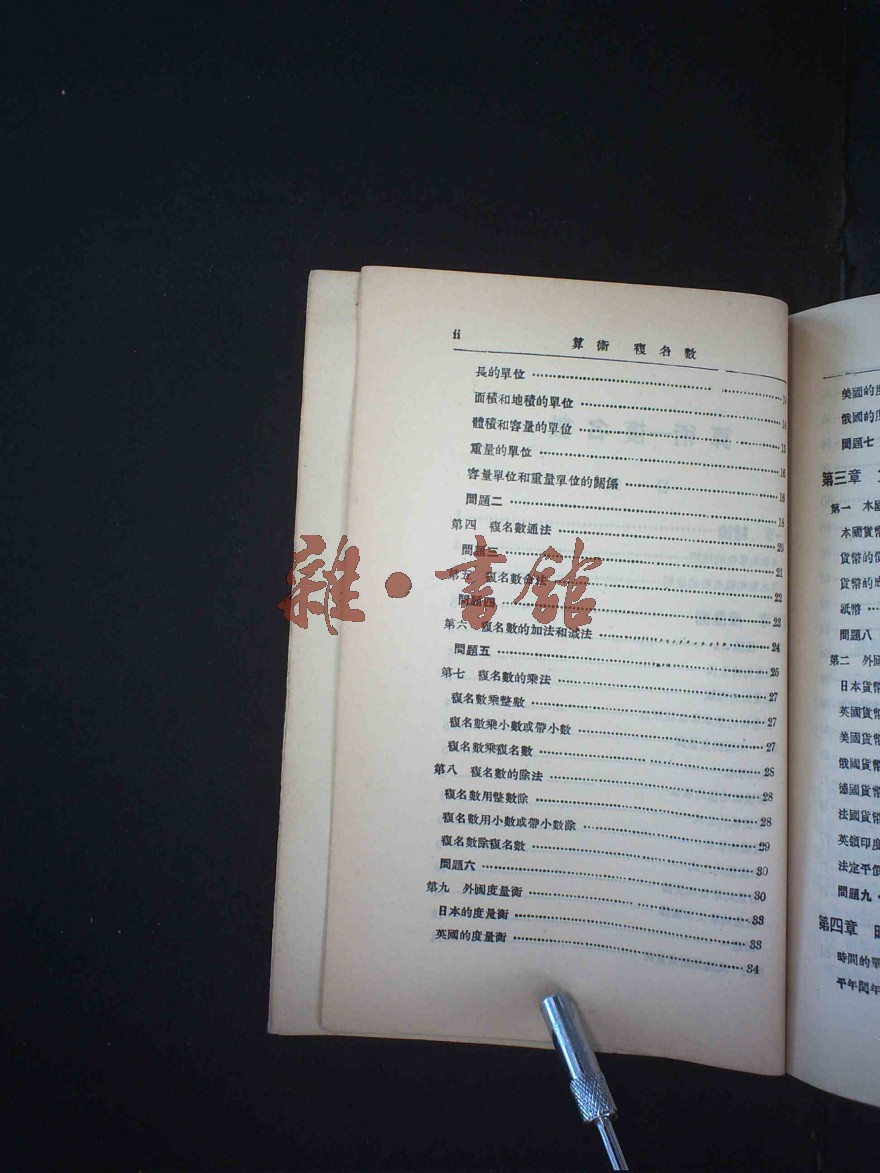 ii
算術 複名數
長的單位
面積和地積的單位 14
體積和容量的單位 15
重量的單位 16
容量單位和重量單位的關係 16
問題二 18
第四 複名數通法 20
問題三 21
第五 複名數命法 22
問題四 23
第六 複名數的加法和減法 24
問題五 25
第七 複名數的乘法 27
複名數乘整數 27
複名數乘小數或帶小數 27
複名數乘複名數 28
第八 複名數的除法 28
複名數用整數除 28
複名數用小數或帶小數除 29
複名數除複名數 30
問題六 30
第九 外國度量衡 33
日本的度量衡 33
英國的度量衡 34
美國的度
俄國的度
問題七
第三章
第一 本國
本國貨幣
貨幣的位
貨幣的成
紙幣
問題八
第二 外國
日本貨幣
英國貨幣
美國貨幣
俄國貨幣
德國貨幣
法國貨幣
英領印度
法定平價
問題九
第四章 時
時間的單
平年閏年
雜·書館